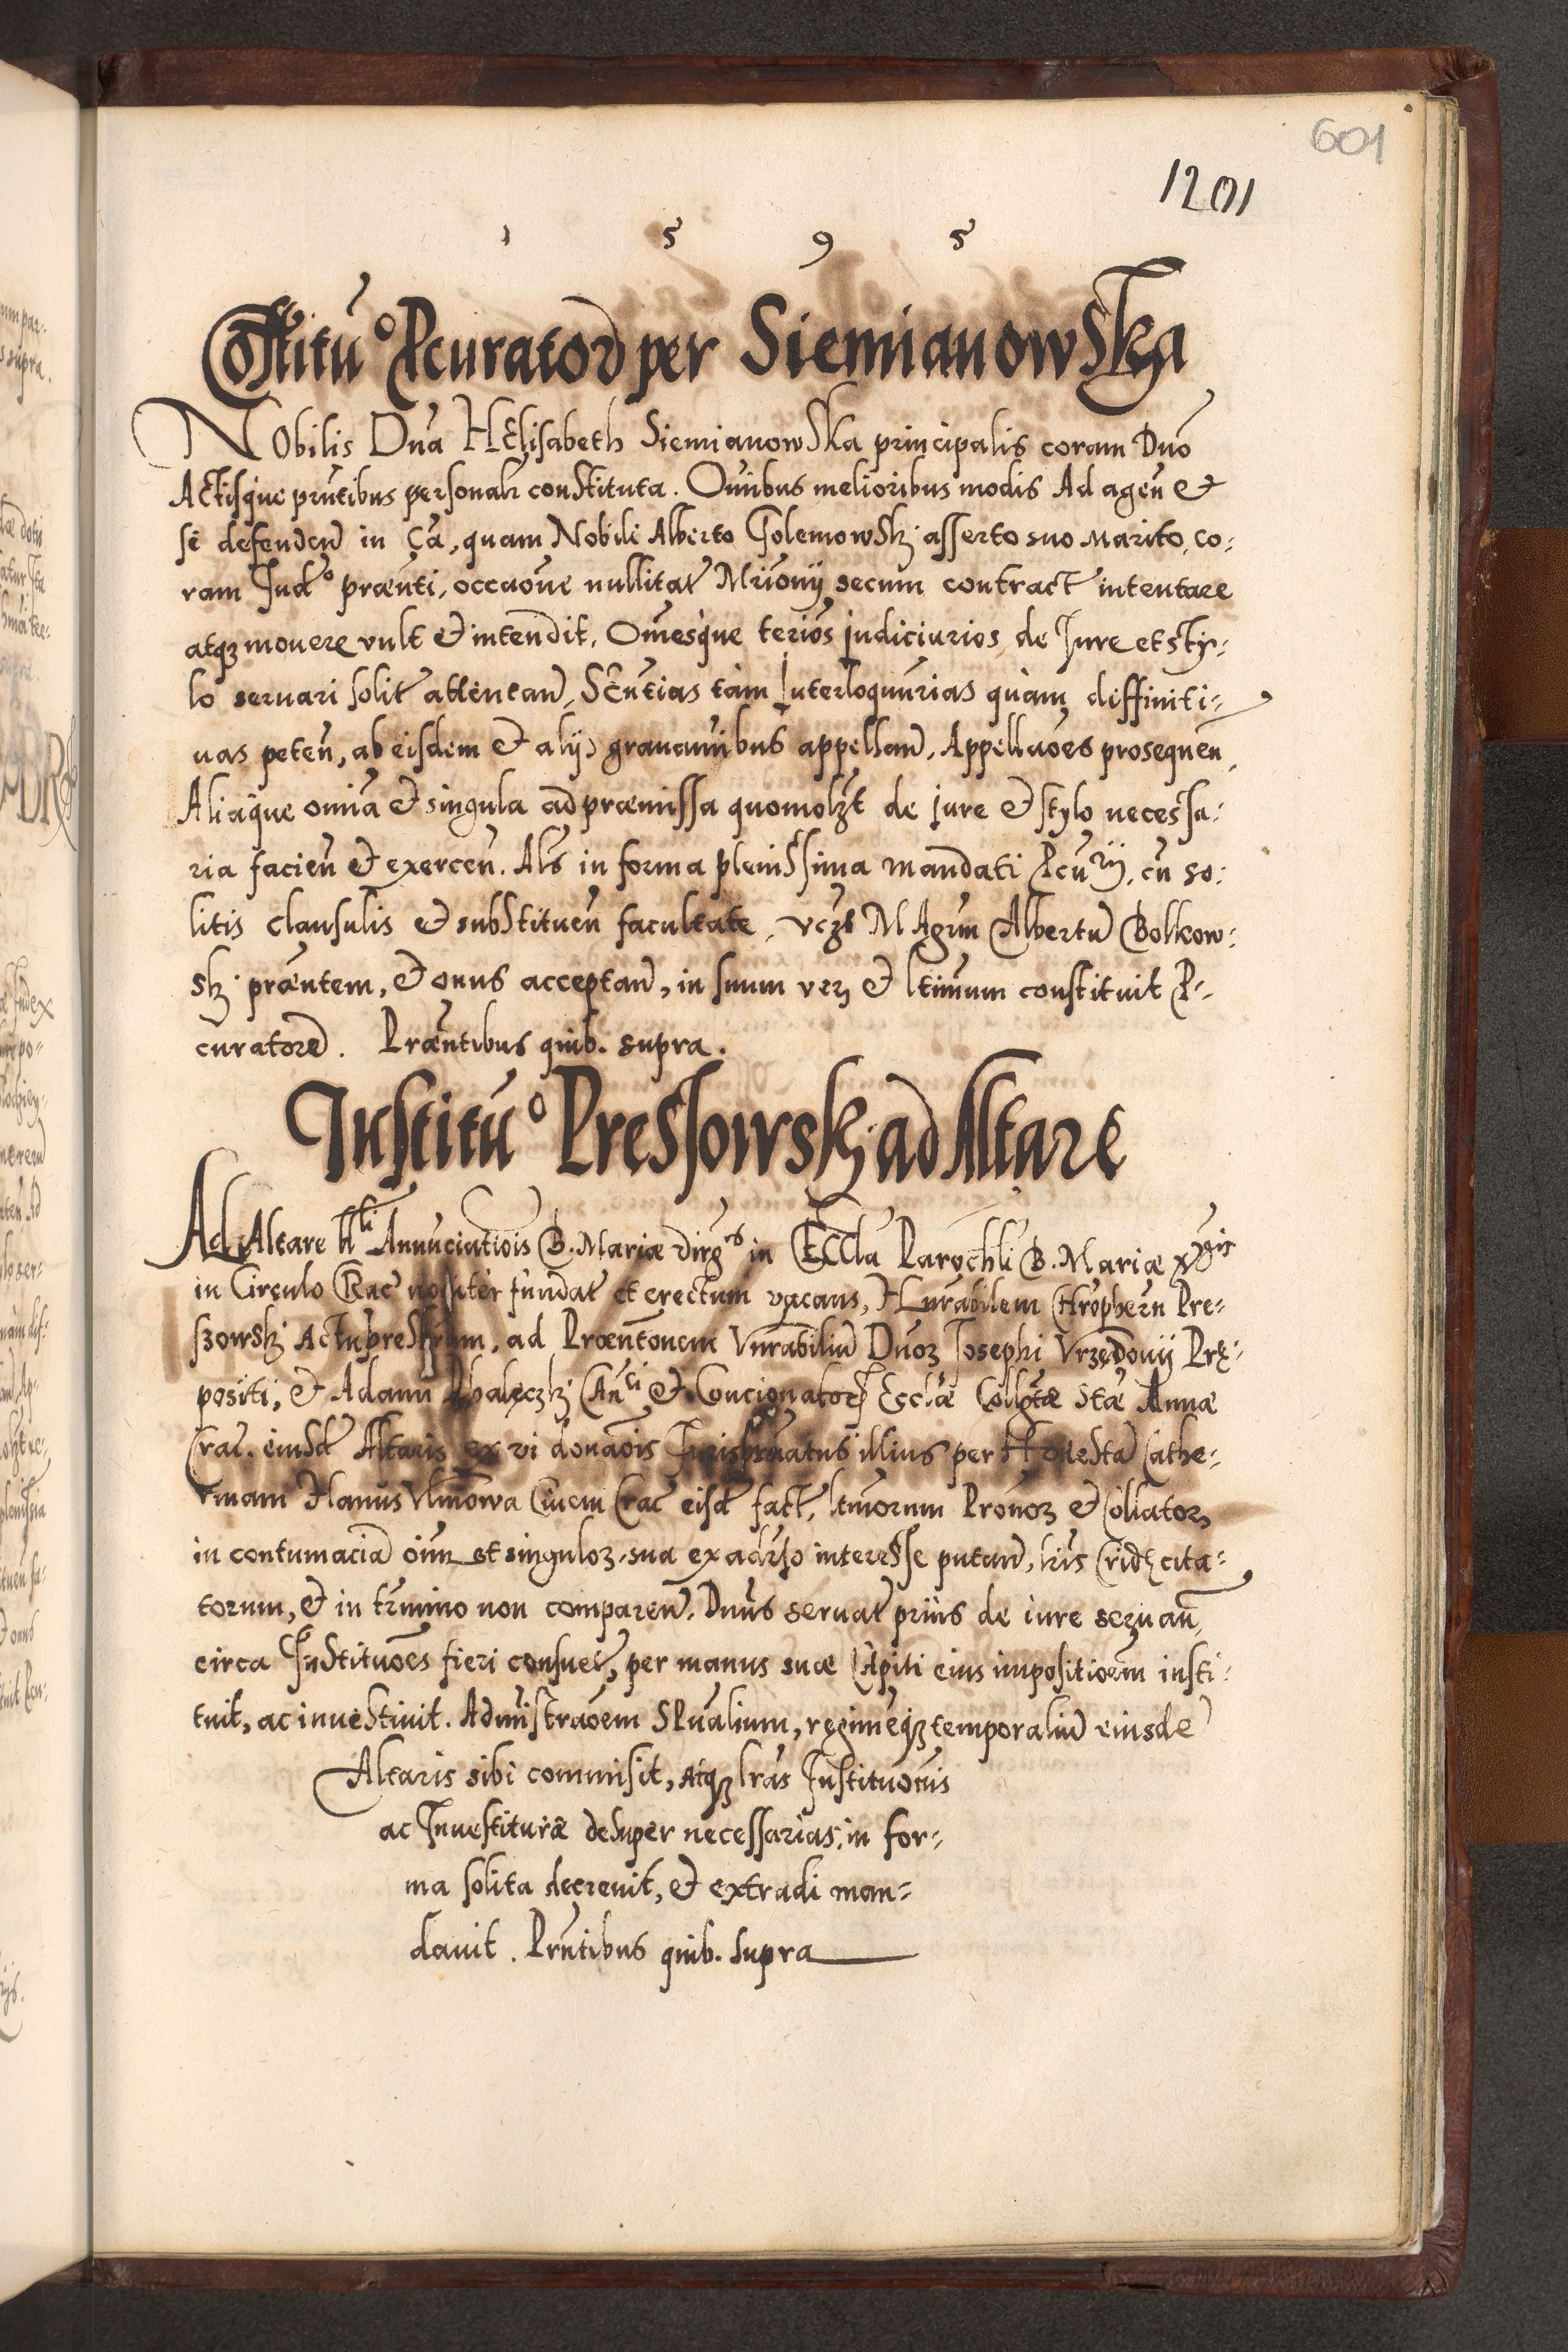 601
1201
1 5 9 5
Constitu͠o Pcurator͠ per Siemianowska
NObilis Dn͠a HElisabeth Siemianowska principalis coram Dn͠o
Actisque prn͠tibus personalr͠ constituta. Om͠ibus melioribus modis Ad agen͠ &
se defenden͠ in Ca͠, quam Nobili Alberto Golemowsk: asserto suo marito, co=
ram Jud͠o præn͠ti, occao͠ne nullitat͠ Mr͠ionij secum contract͠ intentare
atq3 movere vult & intendit. Om͠esque ter͠ios judiciarios de Jure et sty=
lo servari solit͠ attentan͠, Sen͠tias tam Interloqun͠rias quam diffiniti=
uas peten͠, ab eisdem & alijs grauam͠ibus appellan͠, Appellao͠es prosequen͠,
Aliaque om͠ia & singula ad præmissa quomol3t de jure & stylo necessa=
ria facien͠ & exercen͠. Als͠ in forma plenissima mandati Pcu͠rij, cu͠ so=
litis clausulis & substituen͠ facultate, vc3t MAgr͠um Albertu͠ Bolkow=
sk: præn͠tem, & onus acceptan͠, in suum ver3 & ltim͠um constituit P=
curatore͠. Præn͠tibus quib. supra.
Institu͠o Pressowsk: ad Altare
Ad Altare tt͠li Annunciatio͠is B. Mariæ Virg͠is in Eccl͠a Parochli͠ B. Mariæ Vgis
in Circulo Crac͠ no͠siter fundat͠ et erectum vacans, Hn͠rabilem Chro͠phern͠ Pre=
szowsk: Actu presbr͠um, ad Præn͠tonem Vn͠rabiliu͠ Dn͠o3 Josephi Vrzędouij Præ=
positi, & Adami Phalęczk: Can͠ci & Concionator͠ Eccl͠æ Coll͠gtæ Stæ Annæ
Crac͠. eiusd͠ Altaris ex vi donao͠is Jurispatr͠onatus illius per Honesta͠ Cathe=
rinam Hanus Vlm͠owa Ciuem Crac͠ eisd͠ fact͠, ltim͠orum Pr͠ono3 & Collator3
in contumacia͠ oi͠um et singulo3 sua ex aduerso interesse putan͠, lris͠ Crid3 cita=
torum, & in tr͠mino non comparen͠. Dn͠us seruat͠ prius de iure seruan͠,
circa Instituo͠es fieri consuet͠, per manus suæ Capiti eius impositio͠em insti=
tuit, ac inuestiuit. Adm͠istrao͠em Spu͠alium, regimeq3 temporaliu͠ eiusde͠
Altaris sibi commisit, atq3 lr͠as Instituo͠nis
ac Inuestituræ desuper necessarias, in for=
ma solita decreuit, & extradi man=
dauit. Prn͠tibus quib. supra